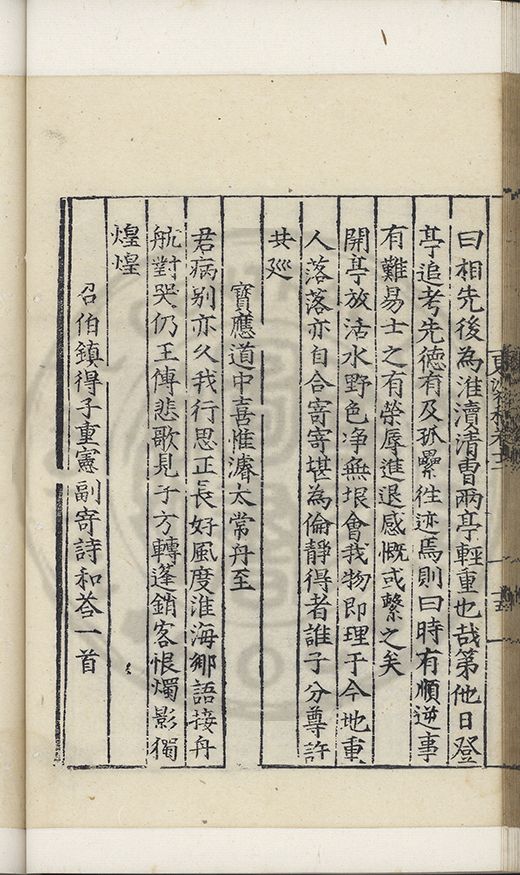 曰相先後為淮瀆清曹兩亭輕重也哉第他日登
亭追考先徳有及孤纍徃迹焉則曰時有順逆事
有難易士之有榮辱進退感慨或繫之矣
開亭放活水野色净無垠會我物即理于今地重
人落落亦自合寄寄堪為倫靜得者誰子分尊許
共廵
寳應道中喜惟濬太常舟至
君病别亦久我行思正長好風度淮海鄉語接舟
航對哭仍王傳悲歌見子方轉蓬銷客恨燭影獨
煌煌
召伯鎮得子重憲副寄詩和荅一首